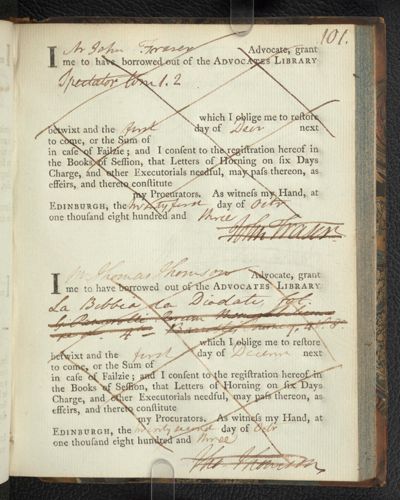 101.
I Mr John Fraser Advocate, grant
me to have borrowed out of the ADVOCATES LIBRARY
Spectator Vom 1. 2
which I oblige me to reſtore
betwixt and the first day of Decr next
to come, or the Sum of
in caſe of Failzie; and I conſent to the regiſtration hereof in
the Books of Seſſion, that Letters of Horning on ſix Days
Charge, and other Executorials needful, may paſs thereon, as
effeirs, and thereto conſtitute
my Procurators. As witneſs my Hand, at
EDINBURGH, the twenty first day of Octr
one thouſand eight hundred and three
John Fraser
I Mr Thomas Thomson Advocate, grant
me to have borrowed out of the ADVOCATES LIBRARY
La Bibbia da Diodati, fol.
which I oblige me to reſtore
betwixt and the first day of Decem next
to come, or the Sum of
in caſe of Failzie; and I conſent to the regiſtration hereof in
the Books of Seſſion, that Letters of Horning on ſix Days
Charge, and other Executorials needful, may paſs thereon, as
effeirs, and thereto conſtitute
my Procurators. As witneſs my Hand, at
EDINBURGH, the twenty second day of Octr
one thouſand eight hundred and three
Tho Thomson